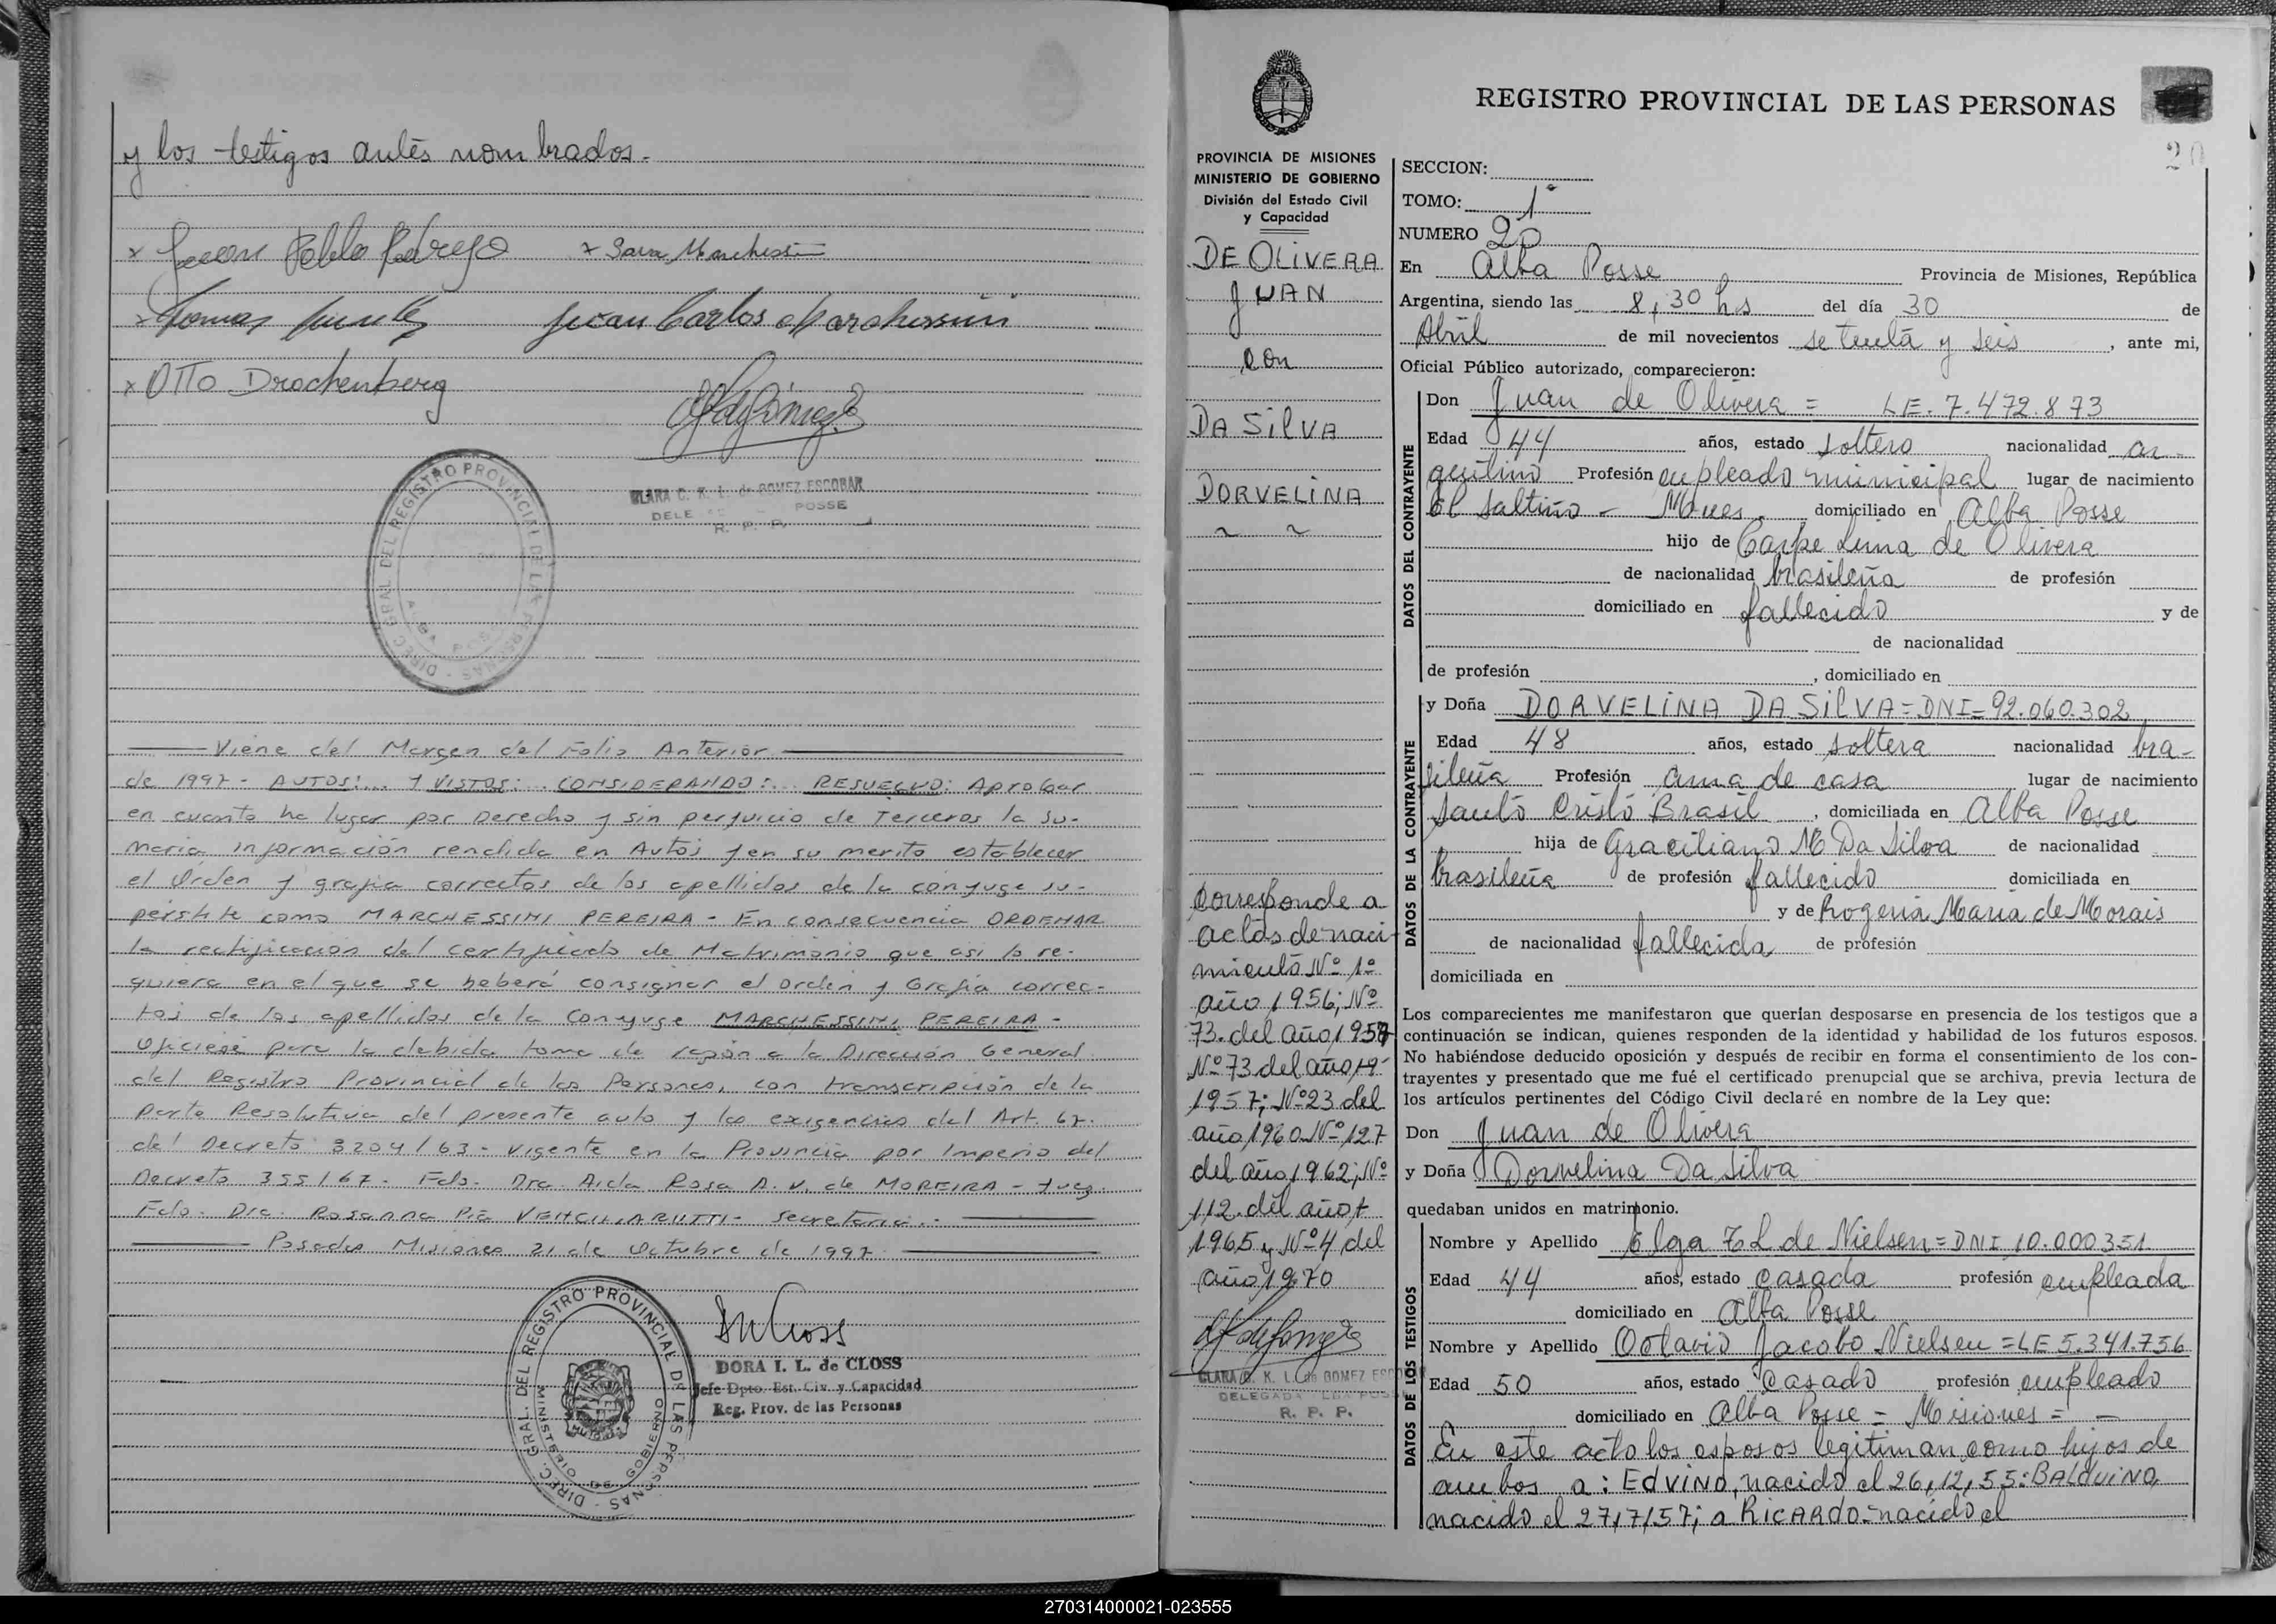 y los testigos antes nombrados.-
x Juan Pablo Pedrejo x Sara Marchessini
x Tomas Juan Carlos Marchessini
x Otto Drachenberg
CLARA C. K. L. de GOMEZ ESCOBAR
DELE POSSE
R. P. P.
DIREC. GRAL. DEL REGISTRO PROVINCIAL DE LAS PERSONAS - ALBA POSSE
Viene del Margen del Folio Anterior
de 1997 - AUTOS:... Y VISTOS:... CONSIDERANDO:... RESUELVO: Aprobar
en cuanto ha lugar por Derecho y sin perjuicio de Terceros la Su-
maria información rendida en Autos y en su merito establecer
el Orden y grafia correctos de los apellidos de la conyuge su-
pérstite como MARCHESSINI PEREIRA - En consecuencia ORDENAR
la rectificación del certificado de Matrimonio que asi lo re-
quiera en el que se deberá consignar el orden y Grafia correc-
tos de los apellidos de la Conyuge MARCHESSINI PEREIRA -
Oficiese para la debida toma de razón a la Dirección General
del Registro Provincial de las Personas, con transcripción de la
Parte Resolutiva del presente auto y los exigencias del Art. 67.
del Decreto 3204/63 - Vigente en la Provincia por Imperio del
Decreto 355/67 - Fdo. Dra. Aida Rosa A. V. de MOREIRA - Juez.
Fdo. Dra. Rosanna Pía VENCHIARUTTI - Secretaria.-
Posadas Misiones 21 de Octubre de 1997
DORA I. L. de CLOSS
Jefe Dpto. Est. Civ. y Capacidad
Reg. Prov. de las Personas
DIREC. GRAL. DEL REGISTRO PROVINCIAL DE LAS PERSONAS - MINISTERIO DE GOBIERNO
REGISTRO PROVINCIAL DE LAS PERSONAS
20
PROVINCIA DE MISIONES
MINISTERIO DE GOBIERNO
División del Estado Civil
y Capacidad
DE OLIVERA
JUAN
con
DA SILVA
DORVELINA
corresponde a
actas de naci-
miento Nº 1º
año 1956; Nº
73. del año 1957
Nº 73 del año 19-
1957; Nº 23 del
año 1960 Nº 127
del año 1962; Nº
112 del año +
1965 y Nº 4 del
año 1970
CLARA C. K. L. de GOMEZ ESCOBAR
DELEGADA ALBA POSSE
R. P. P.
SECCION:
TOMO: 1º
NUMERO 20
En Alba Posse Provincia de Misiones, República
Argentina, siendo las 8,30 hs del día 30 de
Abril de mil novecientos setenta y seis, ante mi,
Oficial Público autorizado, comparecieron:
DATOS DEL CONTRAYENTE
Don Juan de Olivera = LE. 7.472.873
Edad 44 años, estado soltero nacionalidad ar-
gentino Profesión empleado municipal lugar de nacimiento
El Saltiño - Mnes. domiciliado en Alba Posse
hijo de Carpe Lima de Olivera
de nacionalidad brasileña de profesión
domiciliado en fallecido y de
de nacionalidad
de profesión , domiciliado en
DATOS DE LA CONTRAYENTE
y Doña DORVELINA DA SILVA = DNI = 92.060.302
Edad 48 años, estado soltera nacionalidad bra-
sileña Profesión ama de casa lugar de nacimiento
Santo Cristo Brasil , domiciliada en Alba Posse
hija de Graciliano M Da Silva de nacionalidad
brasileña de profesión fallecido domiciliada en
y de Rogeria Maria de Morais
de nacionalidad fallecida de profesión
domiciliada en
Los comparecientes me manifestaron que querían desposarse en presencia de los testigos que a
continuación se indican, quienes responden de la identidad y habilidad de los futuros esposos.
No habiéndose deducido oposición y después de recibir en forma el consentimiento de los con-
trayentes y presentado que me fué el certificado prenupcial que se archiva, previa lectura de
los artículos pertinentes del Código Civil declaré en nombre de la Ley que:
Don Juan de Olivera
y Doña Dorvelina Da Silva
quedaban unidos en matrimonio.
DATOS DE LOS TESTIGOS
Nombre y Apellido Elga Z L de Nielsen = DNI 10.000351
Edad 44 años, estado casada profesión empleada
domiciliado en Alba Posse
Nombre y Apellido Octavio Jacobo Nielsen = LE 5.341.756
Edad 50 años, estado casado profesión empleado
domiciliado en Alba Posse = Misiones = -
En este acto los esposos legitiman como hijos de
ambos a: EDVINO, nacido el 26,12,55: BALDUINO,
nacido el 27,7,57; a RICARDO = nacido el
270314000021-023555